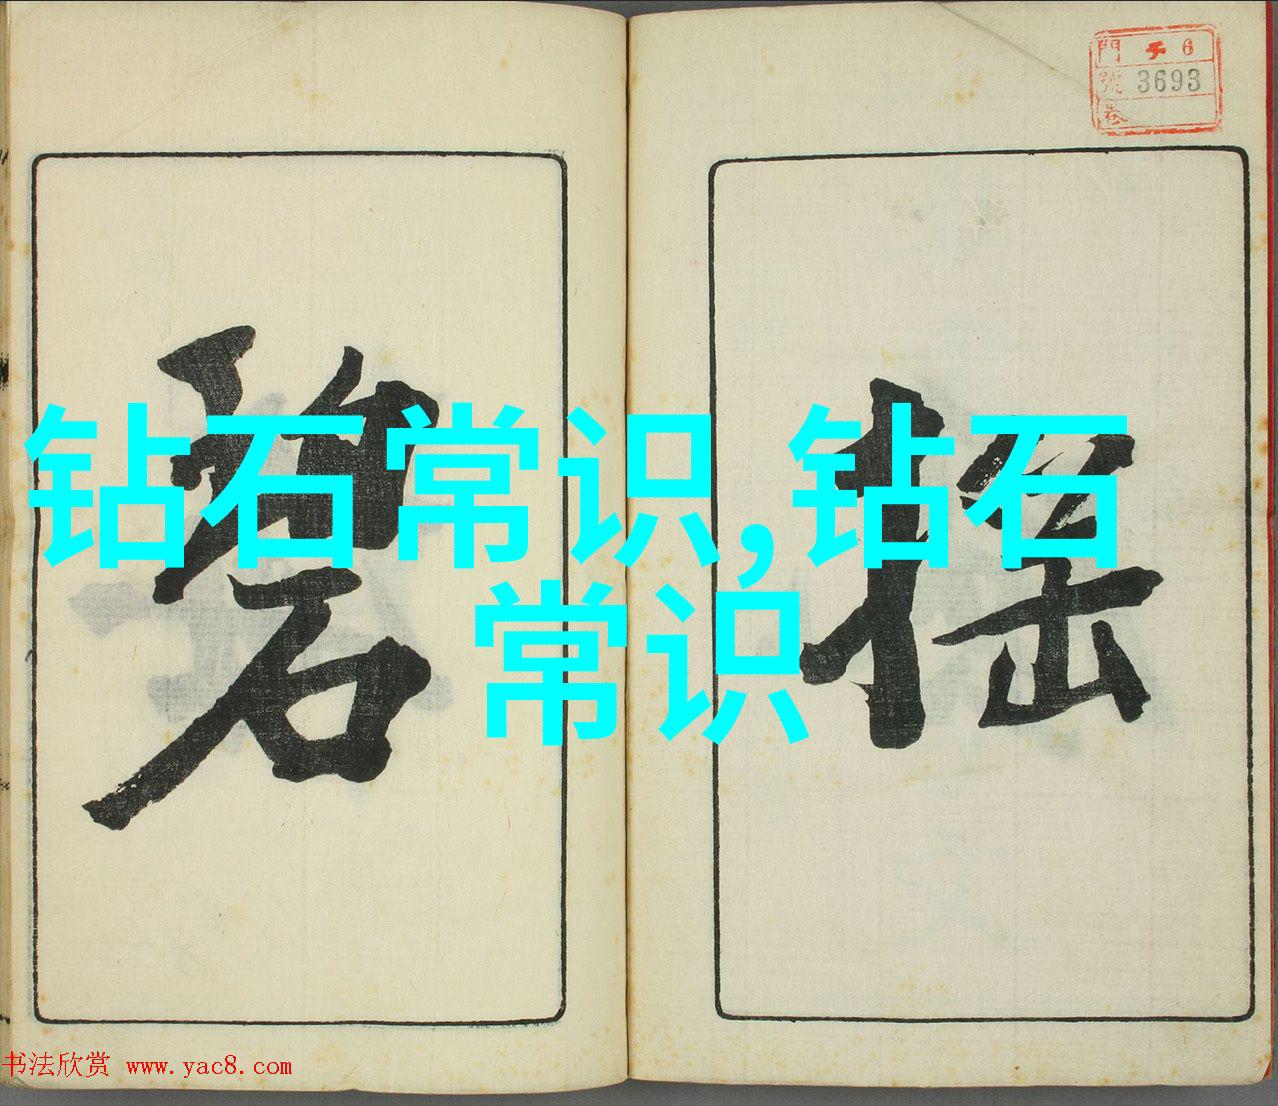 門 チ 6
號 3693
巻
搖
碧
钻石常识,钻石
常识
书法欣赏 www.yac8.com